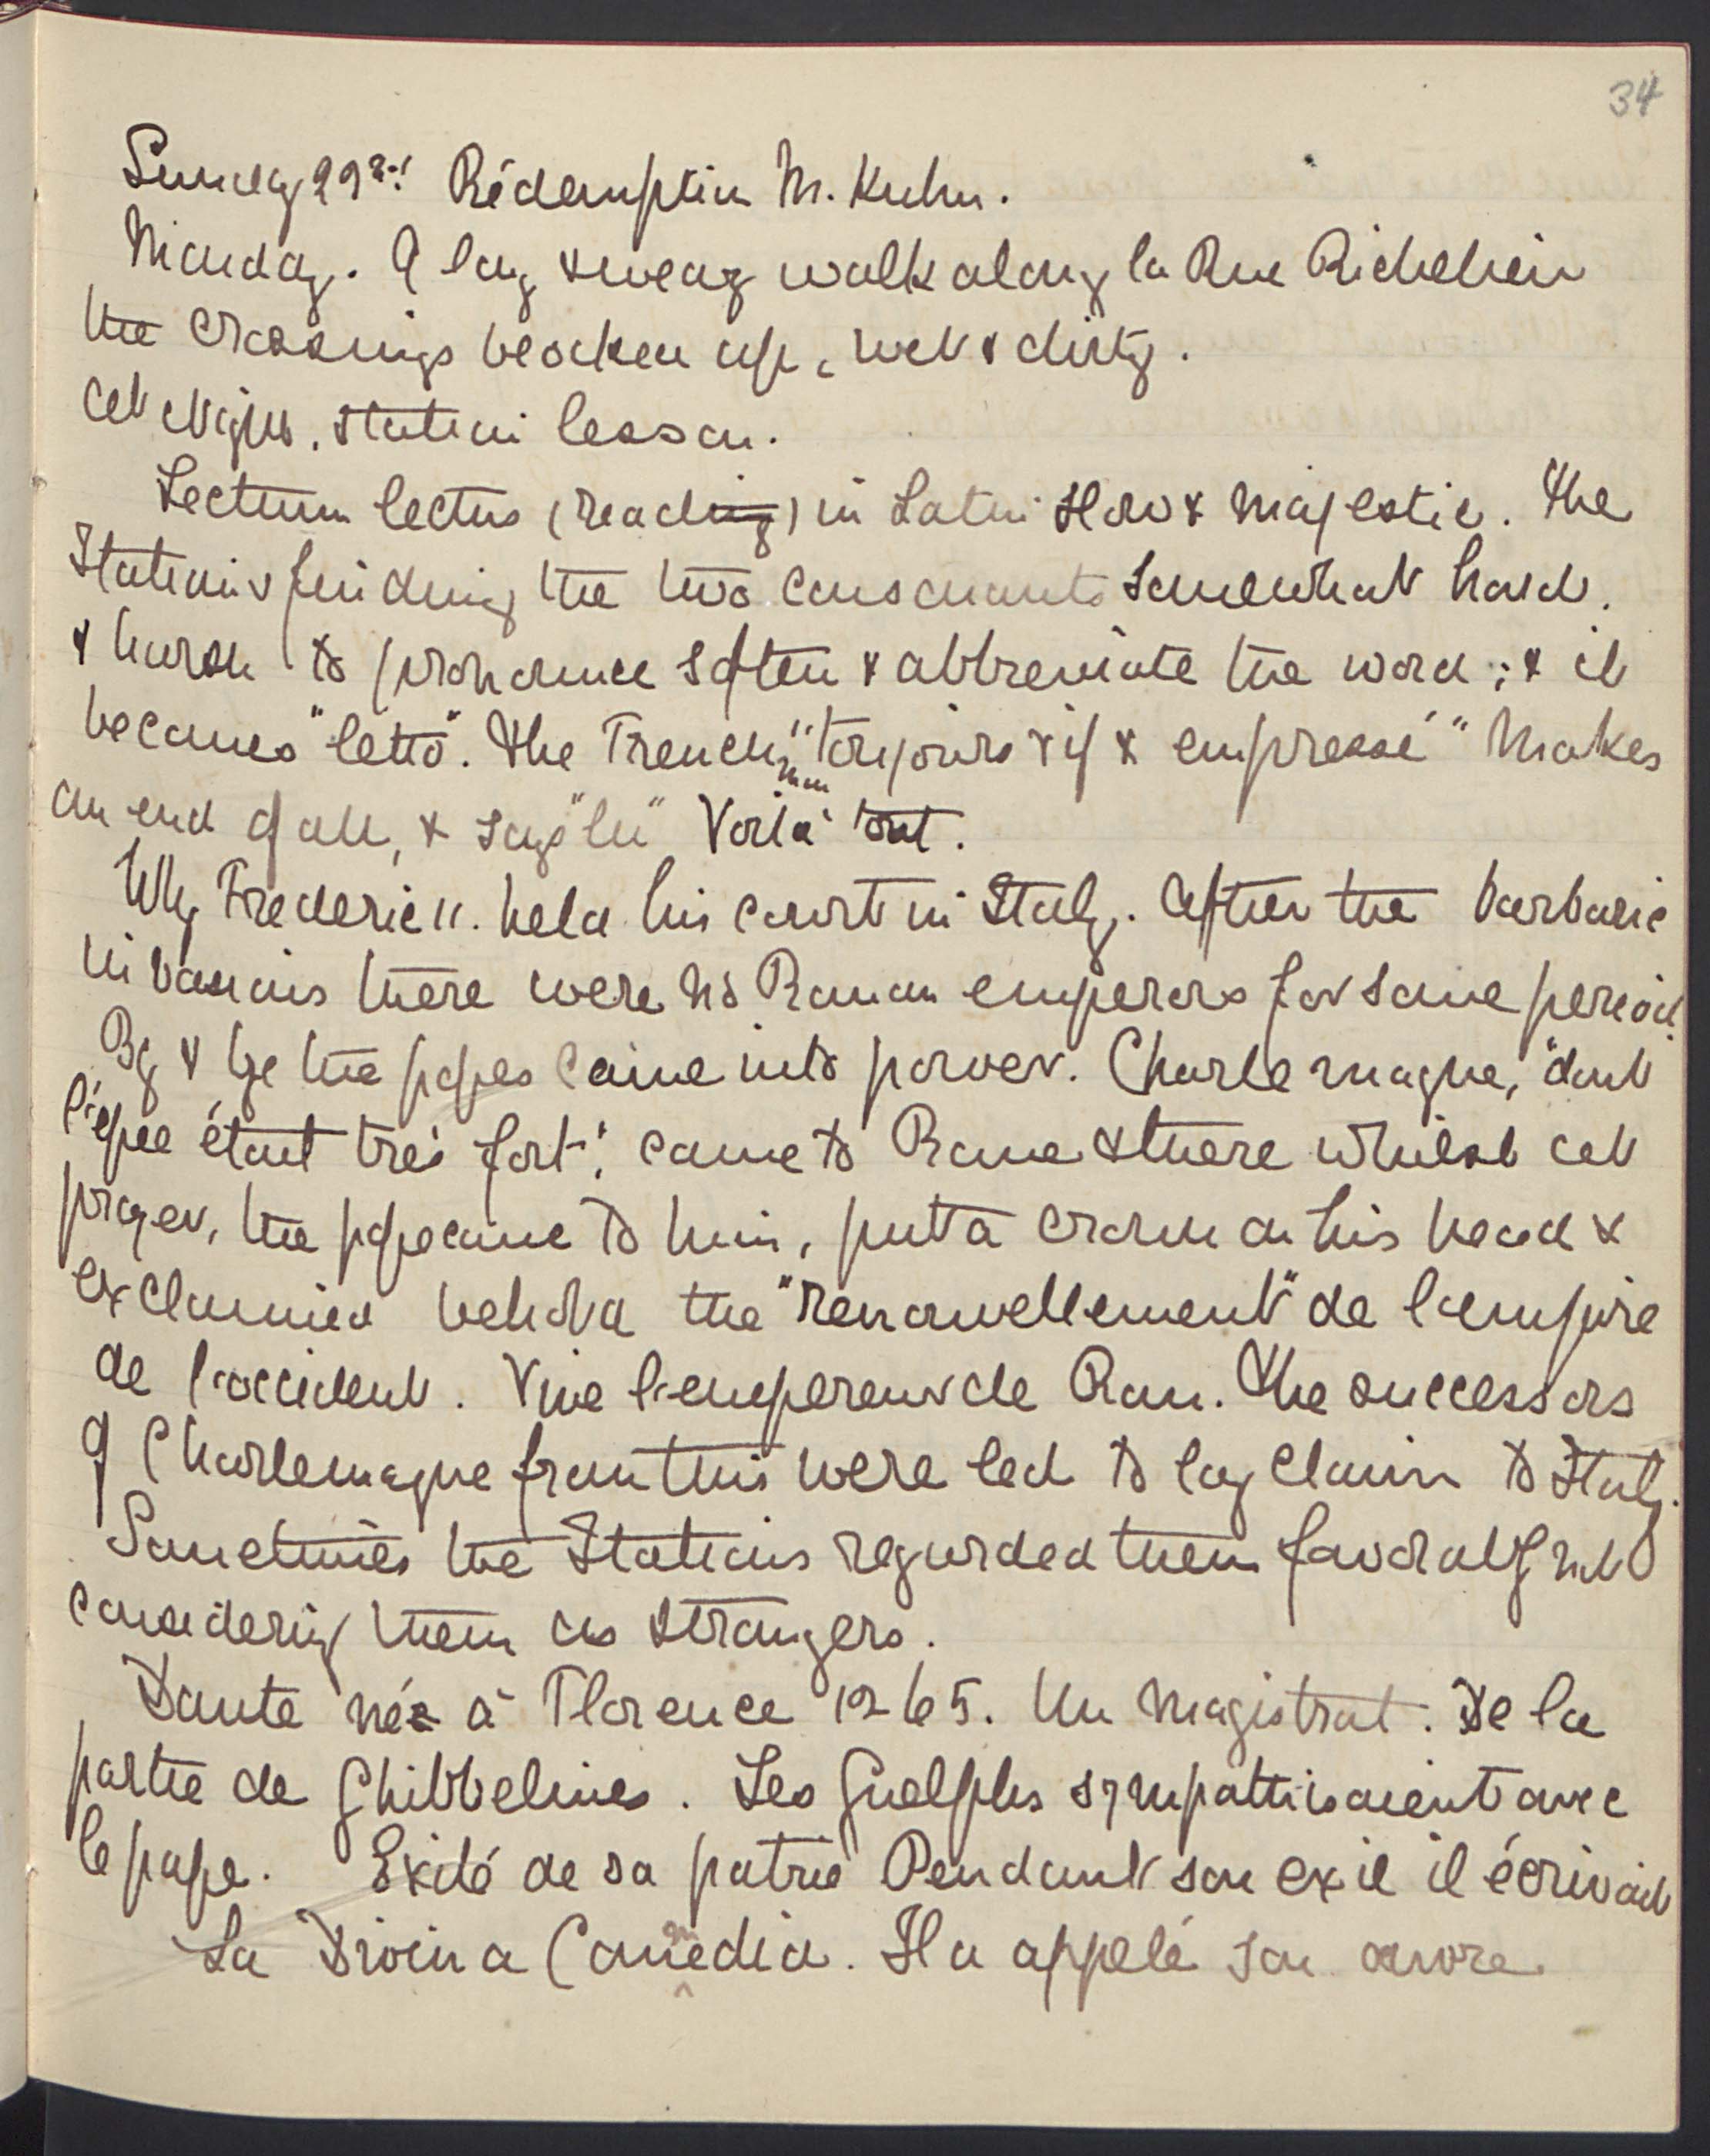 34
Sunday 29 Rédemption M. Kuhn.
Monday. A long & weary walk along la Rue Richelieu
the crossings blocked up, wet & dirty.
At night. Italian lesson.
Lectum lectus (reading) in Latin slow & majestic. The
Italians finding the two consonants somewhat hard.
& harsh to pronounce soften & abbreviate the word; & it
becomes "letto". The French man "toujours vif & empressé" makes
an end of all, & says "lu" Voilà tout.
Why Frederic 11. held his court in Italy. After the barbaric
invasions there were no Roman emperors for some period.
By & bye the popes came into power. Charlemagne, "dont
l'épee étant très fort", came to Rome & there whilst at
prayer, the pope came to him, put a crown on his head &
exclaimed behold the "renouvellement" de l'empire
de l'occident. Vive l'empereur de Rom. The successors
of Charlemagne from this were led to lay claim to Italy.
Sometimes the Italians regarded them favorably not
considering them as strangers.
Dante né à Florence 1265. Un magistrat. De la
partie de Ghibbelines. Les Guelphs sympattisaient avec
le pape. Exilé de sa patrie Pendant son exil il écrivait
La Divina Commedia. Il a appelé son œuvre